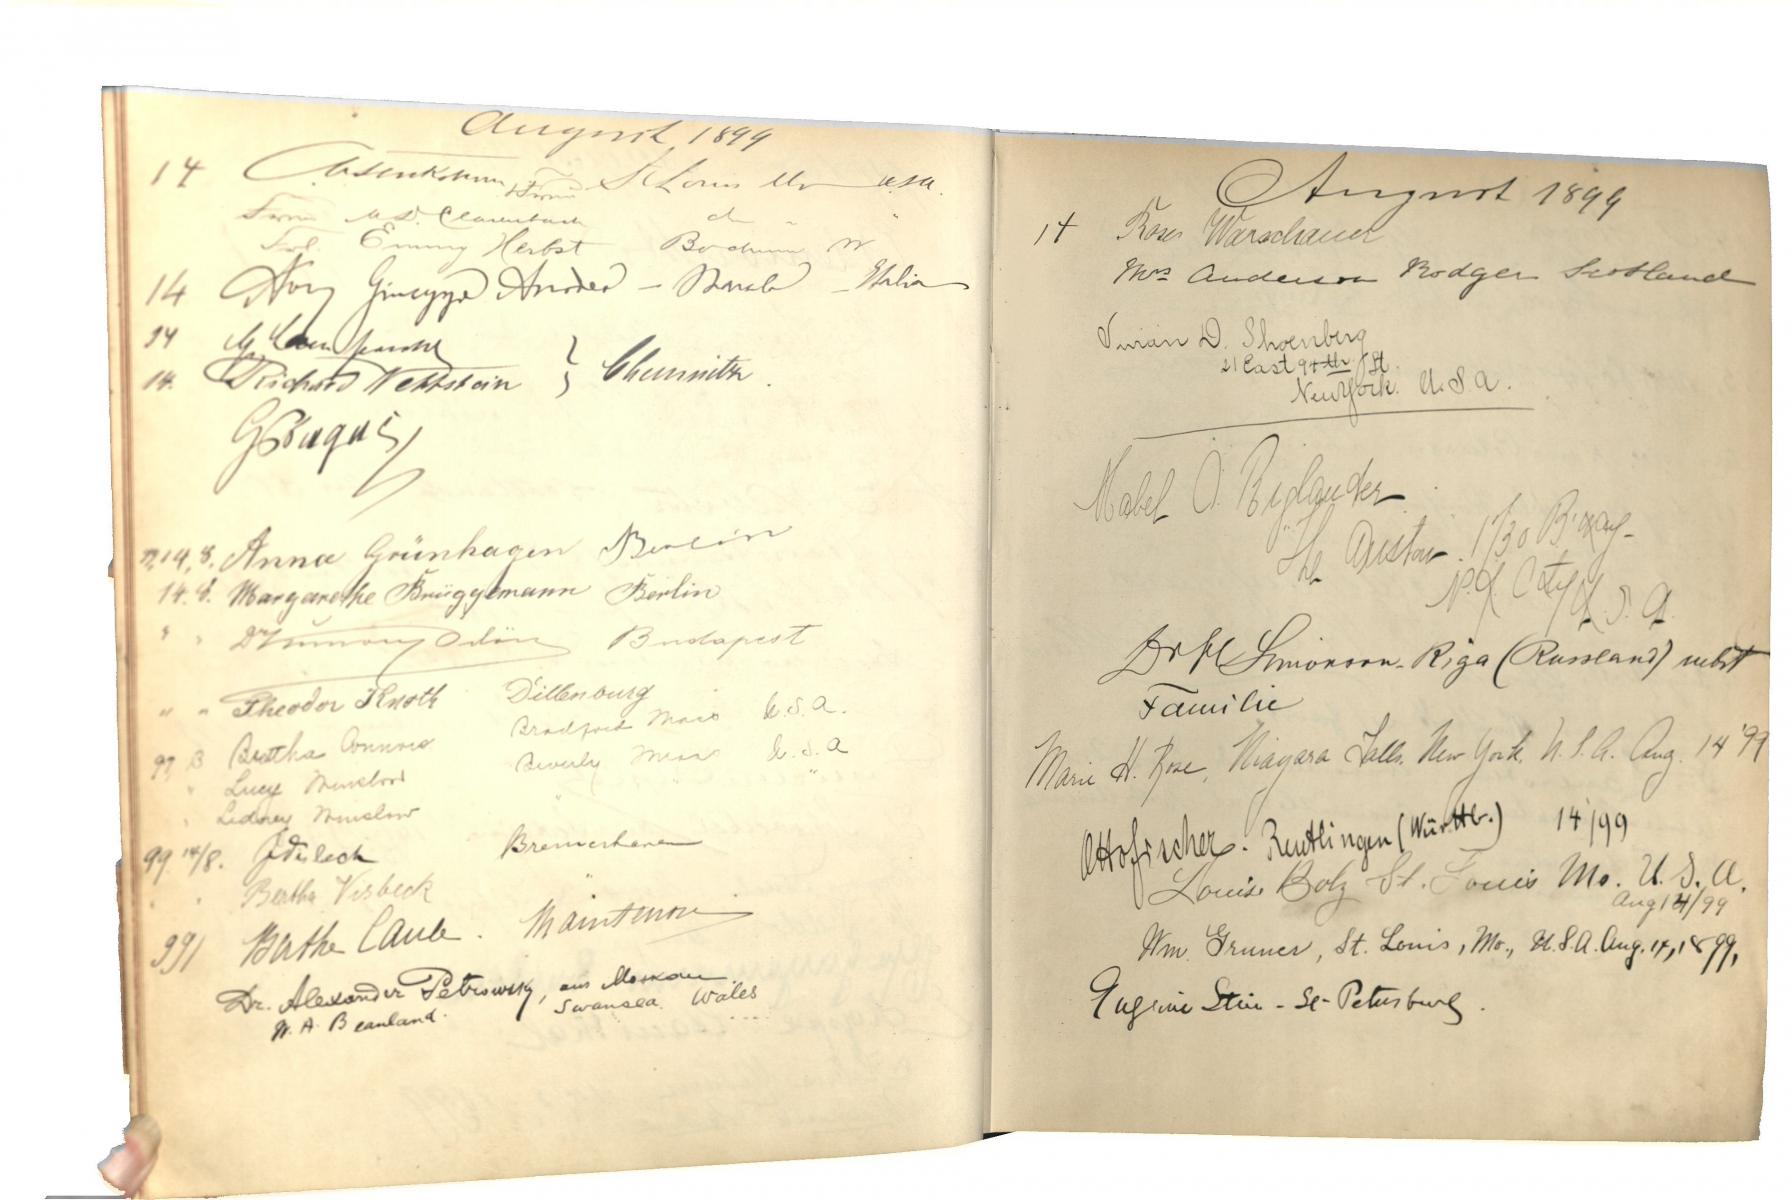 August 1899
14 St Louis Mo U.S.A.
Frau M. D. Clarenbach do "
Frl. Emmy Herbst Bochum W
14 Italia
14
14. Richard Nettstein } Chemnitz.
14, 8. Anna Grünhagen Berlin
14. 8. Margarethe Brüggemann Berlin
" " Dr Ödön Budapest
" " Theodor Knoth Dillenburg
99 Bertha Connors Bradford Mass U.S.A.
" Lucy Winslow Beverly Mass U.S.A
" Sidney Winslow " " "
99 14/8. Bremerhaven
" " Bertha Visbeck "
99 Berthe
Dr. Alexander Petrowsky, aus Moskau.
W. A. Beanland. Swansea. Wales
August 1899
14 Rosa Warschauer
Mrs Anderson Rodger Scotland
Vivian D. Shoenberg
21 East 94th St.
New York. U.S.A.
Mabel Rylander
The Austin. 1730 B'way
N.Y. City U.S.A.
Dr H Simonson - Riga (Russland) nebst
Familie
Marie H. Rose, Niagara Falls, New York, U.S.A. Aug. 14 '99
Otto Fischer. Reutlingen (Württb.) 14/99
Louise Bolz St. Louis Mo. U.S.A.
Aug 14/99
Wm. Gruner, St. Louis, Mo., U.S.A. Aug. 14, 1899,
Eugenie Stein - St-Petersburg.